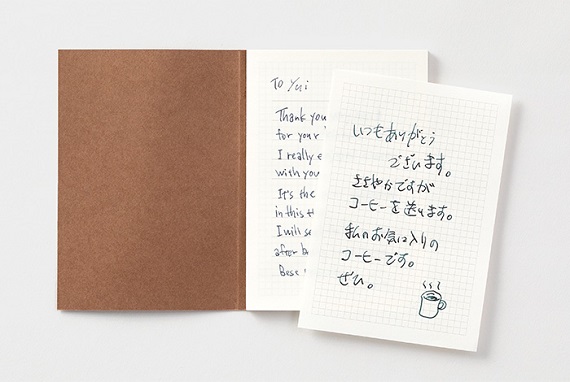 To Yui
Thank you
for your
I really
with you
It's the
in this
I will se
after b
Best
いつもありがとう
ございます。
ささやかですが
コーヒーを送ります。
私のお気に入りの
コーヒーです。
ぜひ。